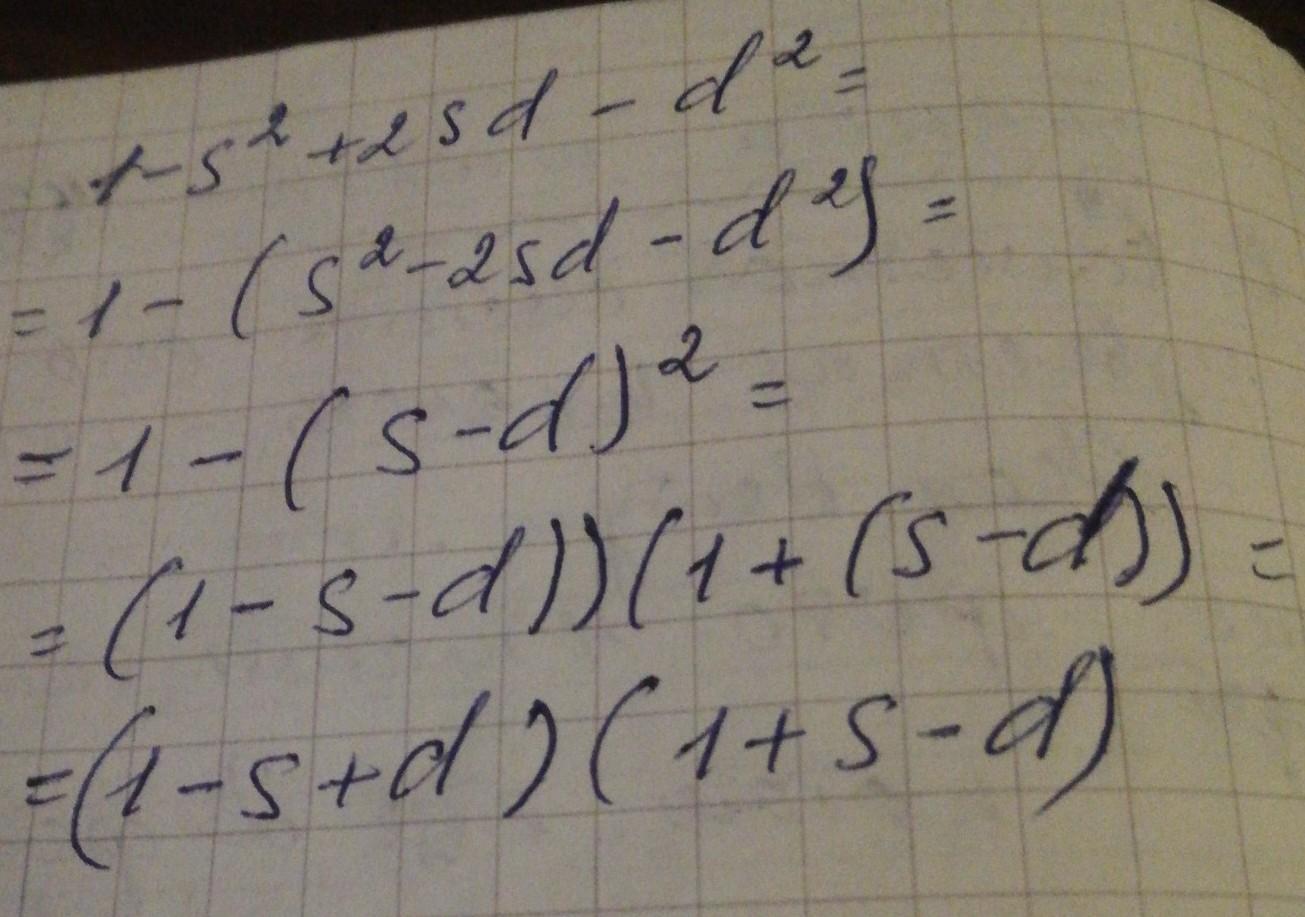 1-s²+2sd-d²=
=1-(s²-2sd-d²)=
=1-(s-d)²=
=(1-s-d))(1+(s-d))=
=(1-s+d)(1+s-d)